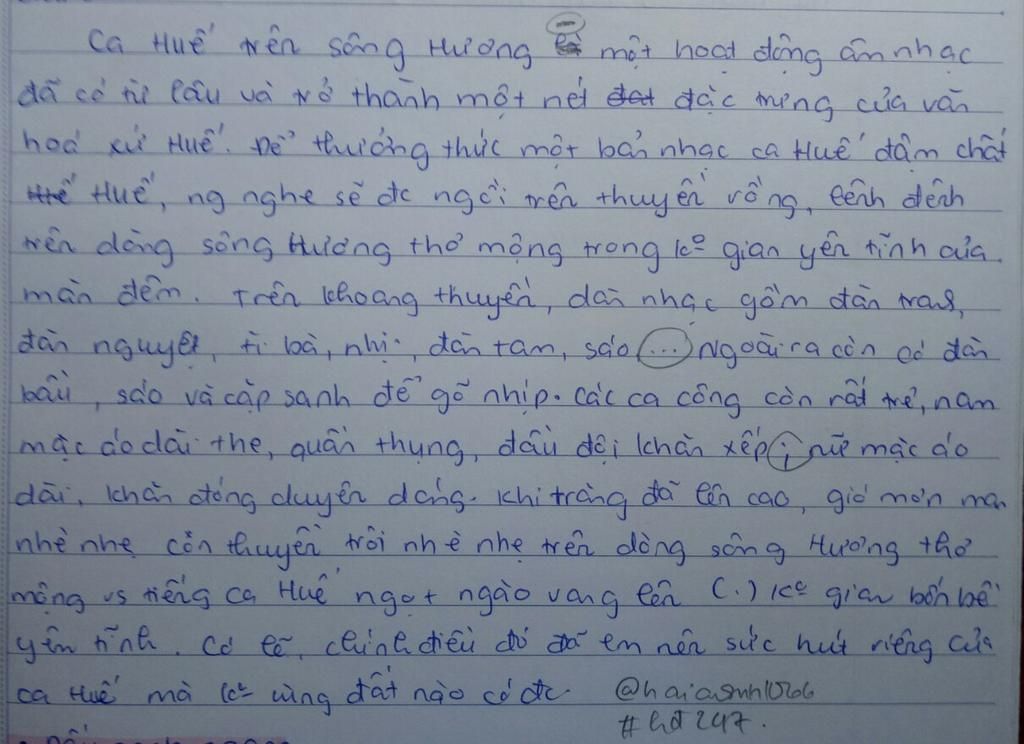 Ca Huế trên sông Hương là một hoạt động âm nhạc
đã có từ lâu và trở thành một nét đặc trưng của văn
hoá xứ Huế. Để thưởng thức một bản nhạc ca Huế đậm chất
Huế, ng nghe sẽ đc ngồi trên thuyền rồng, lênh đênh
trên dòng sông Hương thơ mộng trong kº gian yên tĩnh của
màn đêm. Trên khoang thuyền, dàn nhạc gồm đàn tranh,
đàn nguyệt, tì bà, nhị, đàn tam, sáo (...) Ngoài ra còn có đàn
bầu, sáo và cặp sanh để gõ nhịp. Các ca công còn rất trẻ, nam
mặc áo dài the, quần thụng, đầu đội khăn xếp; nữ mặc áo
dài, khăn đóng duyên dáng. Khi trăng đã lên cao, gió mơn man
nhè nhẹ còn thuyền trôi nhè nhẹ trên dòng sông Hương thơ
mộng vs tiếng ca Huế ngọt ngào vang lên (.) kº gian bốn bề
yên tĩnh. Có lẽ, chính điều đó đã em nên sức hút riêng của
ca Huế mà kº vùng đất nào có đc.
#hđ247.